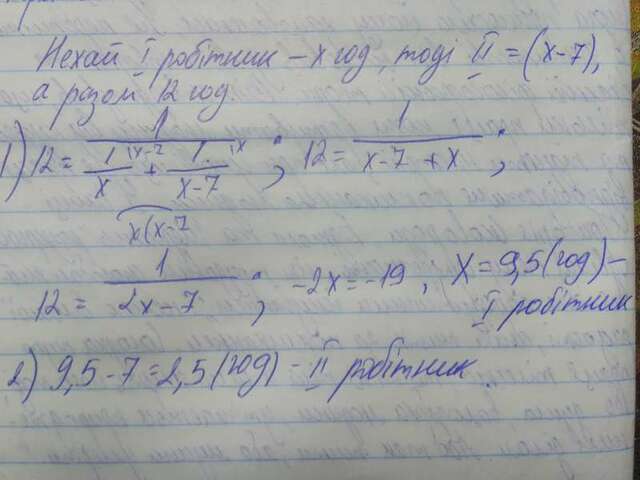 Нехай I робітник – x год, тоді II = (x-7),
а разом 12 год.
1) 12 = 1 / (1/x + 1/(x-7)) ; 12 = 1 / (x-7+x) ;
x(x-7
12 = 1 / (2x-7) ; -2x = -19 ; x = 9,5 (год) –
I робітник
2) 9,5-7 = 2,5 (год) – II робітник.